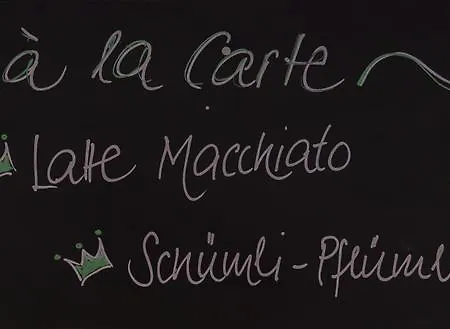 à la Carte
Latte Macchiato
Schümli-Pflüml